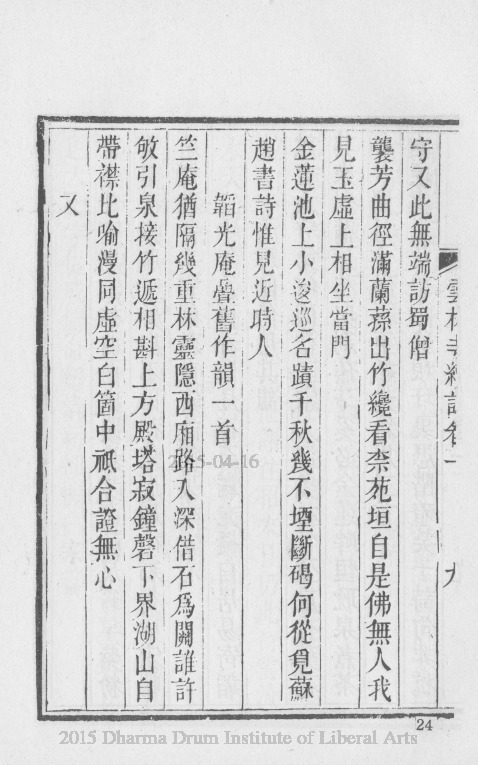 守又此無端訪蜀僧
襲芳曲徑滿蘭蓀出竹纔看柰苑垣自是佛無人我
見玉虛上相坐當門
金蓮池上小逡巡名蹟千秋幾不堙斷碣何從覓蘇
趙書詩惟見近時人
韜光庵疊舊作韻一首
竺庵猶隔幾重林靈隱西廂路入深借石爲關誰許
敂引泉接竹遞相斟上方殿塔寂鐘磬下界湖山自
帶襟比喻漫同虛空白箇中祇合證無心
又
雲林寺續記卷一
九
24
2015-04-16
2015 Dharma Drum Institute of Liberal Arts